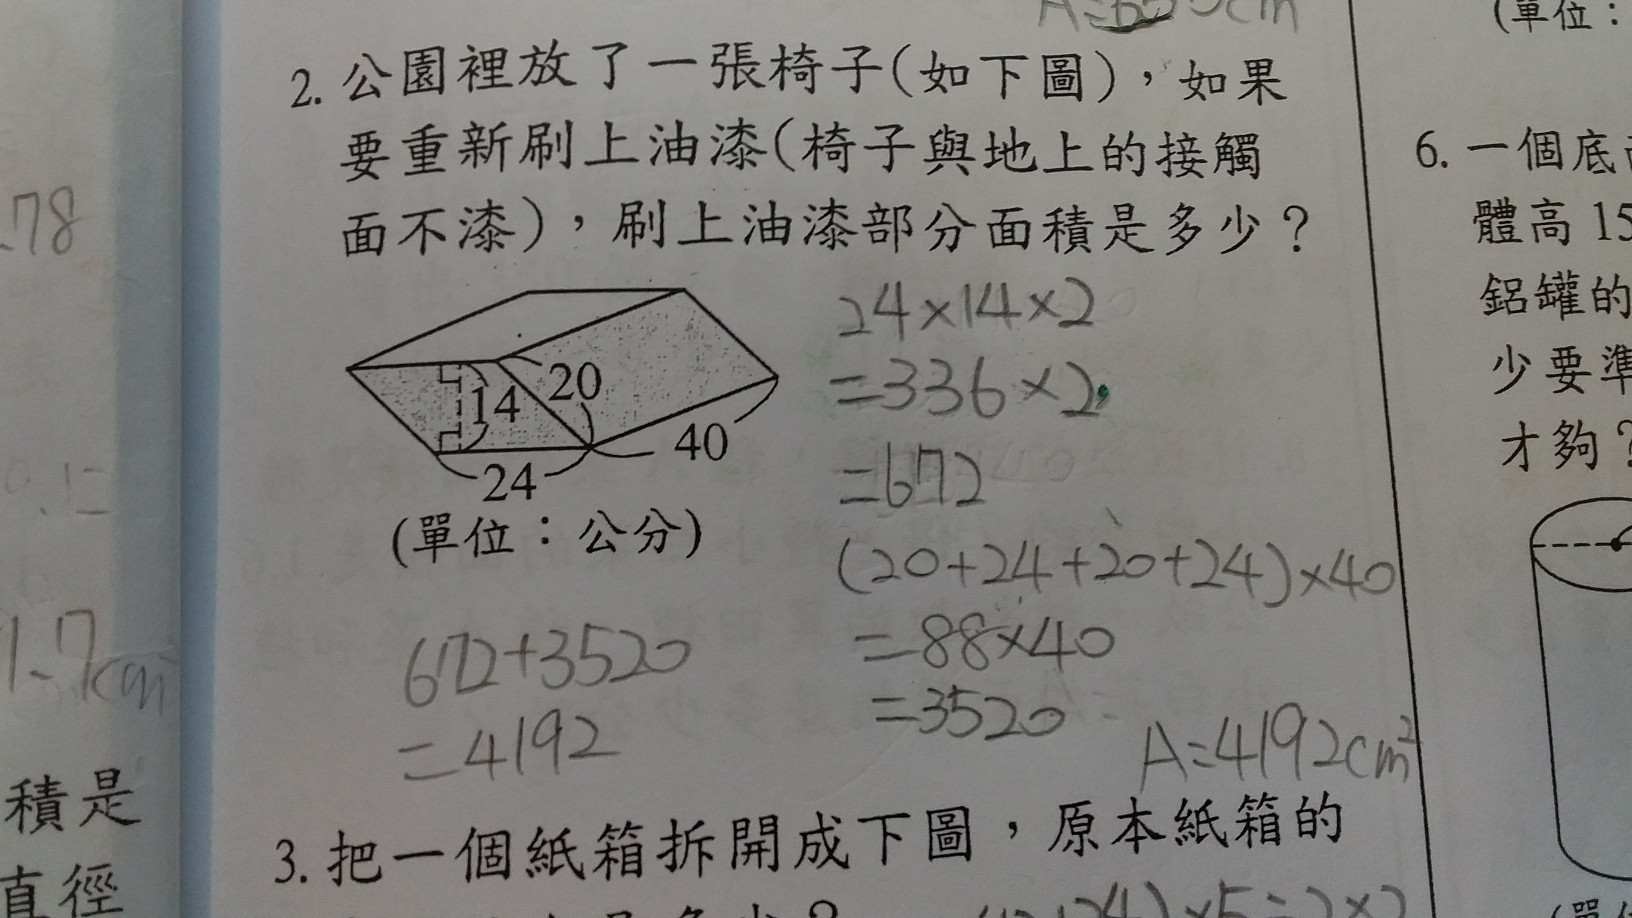 (單位：
2. 公園裡放了一張椅子(如下圖)，如果
要重新刷上油漆(椅子與地上的接觸
面不漆)，刷上油漆部分面積是多少？
14
20
40
24
(單位：公分)
24×14×2
=336×2
=672
(20+24+20+24)×40
=88×40
=3520
672+3520
=4192
A=4192cm²
3. 把一個紙箱拆開成下圖，原本紙箱的
6. 一個底
體高 15
鋁罐的
少要準
才夠？
.78
1.7cm
積是
直徑